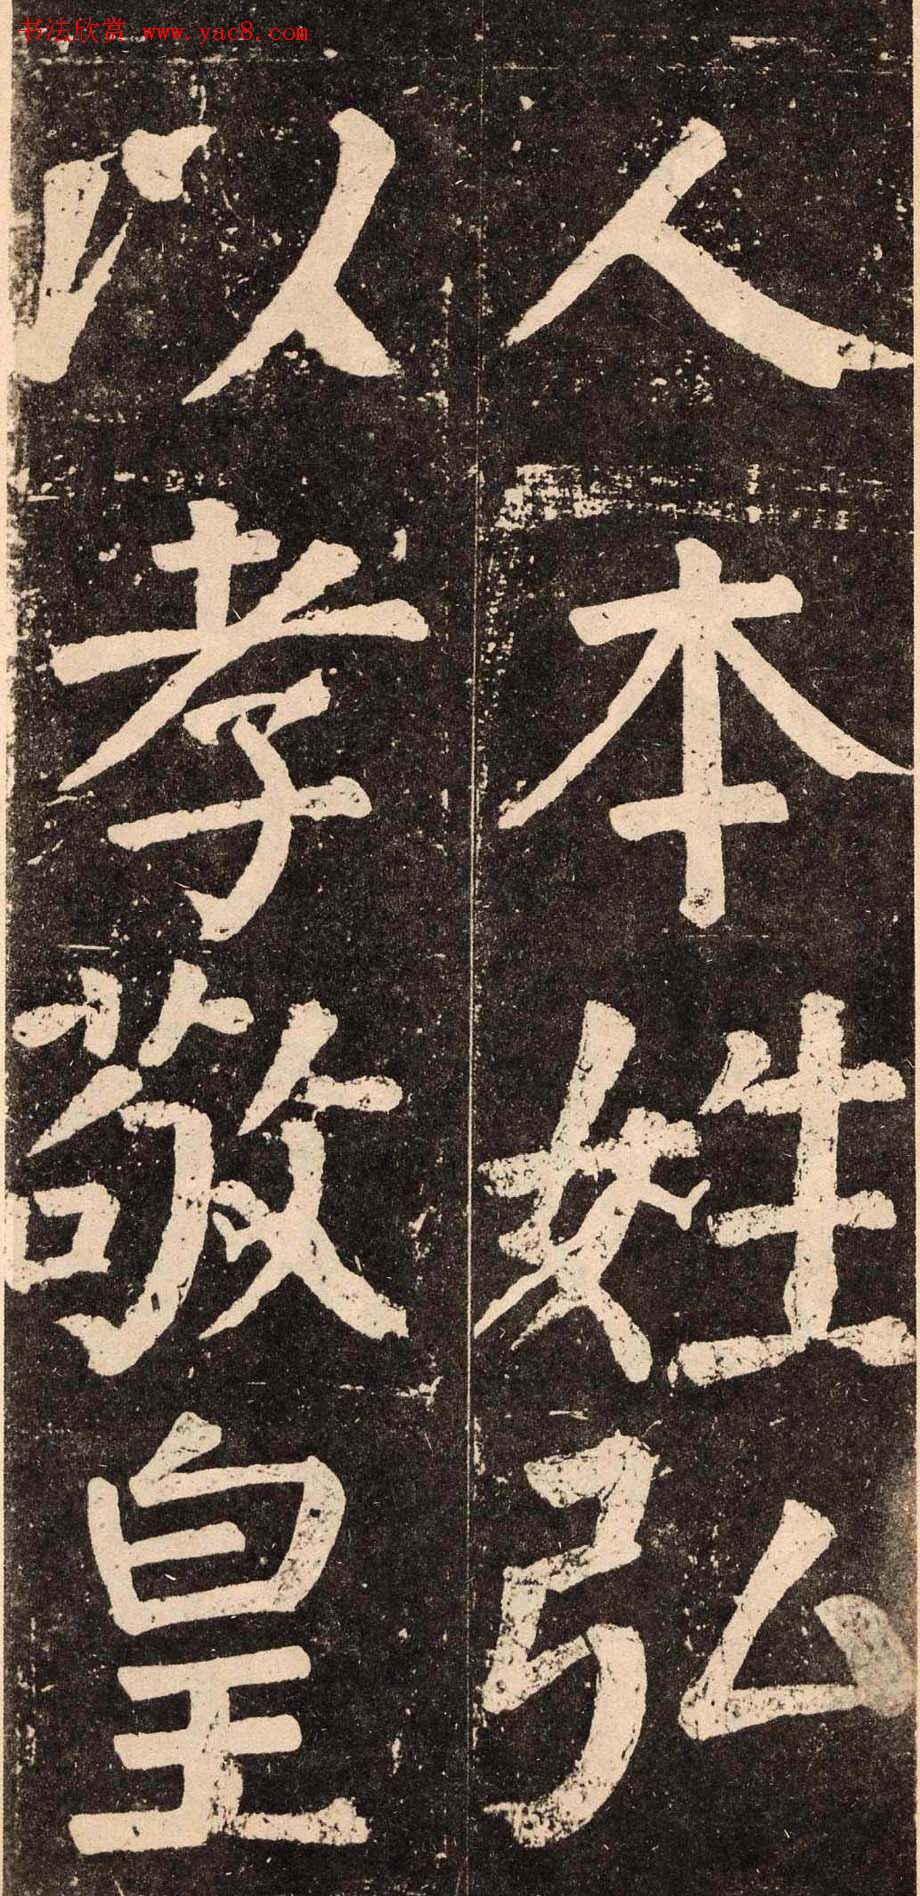 书法欣赏 www.yac8.com
人本姓弘
以孝敬皇